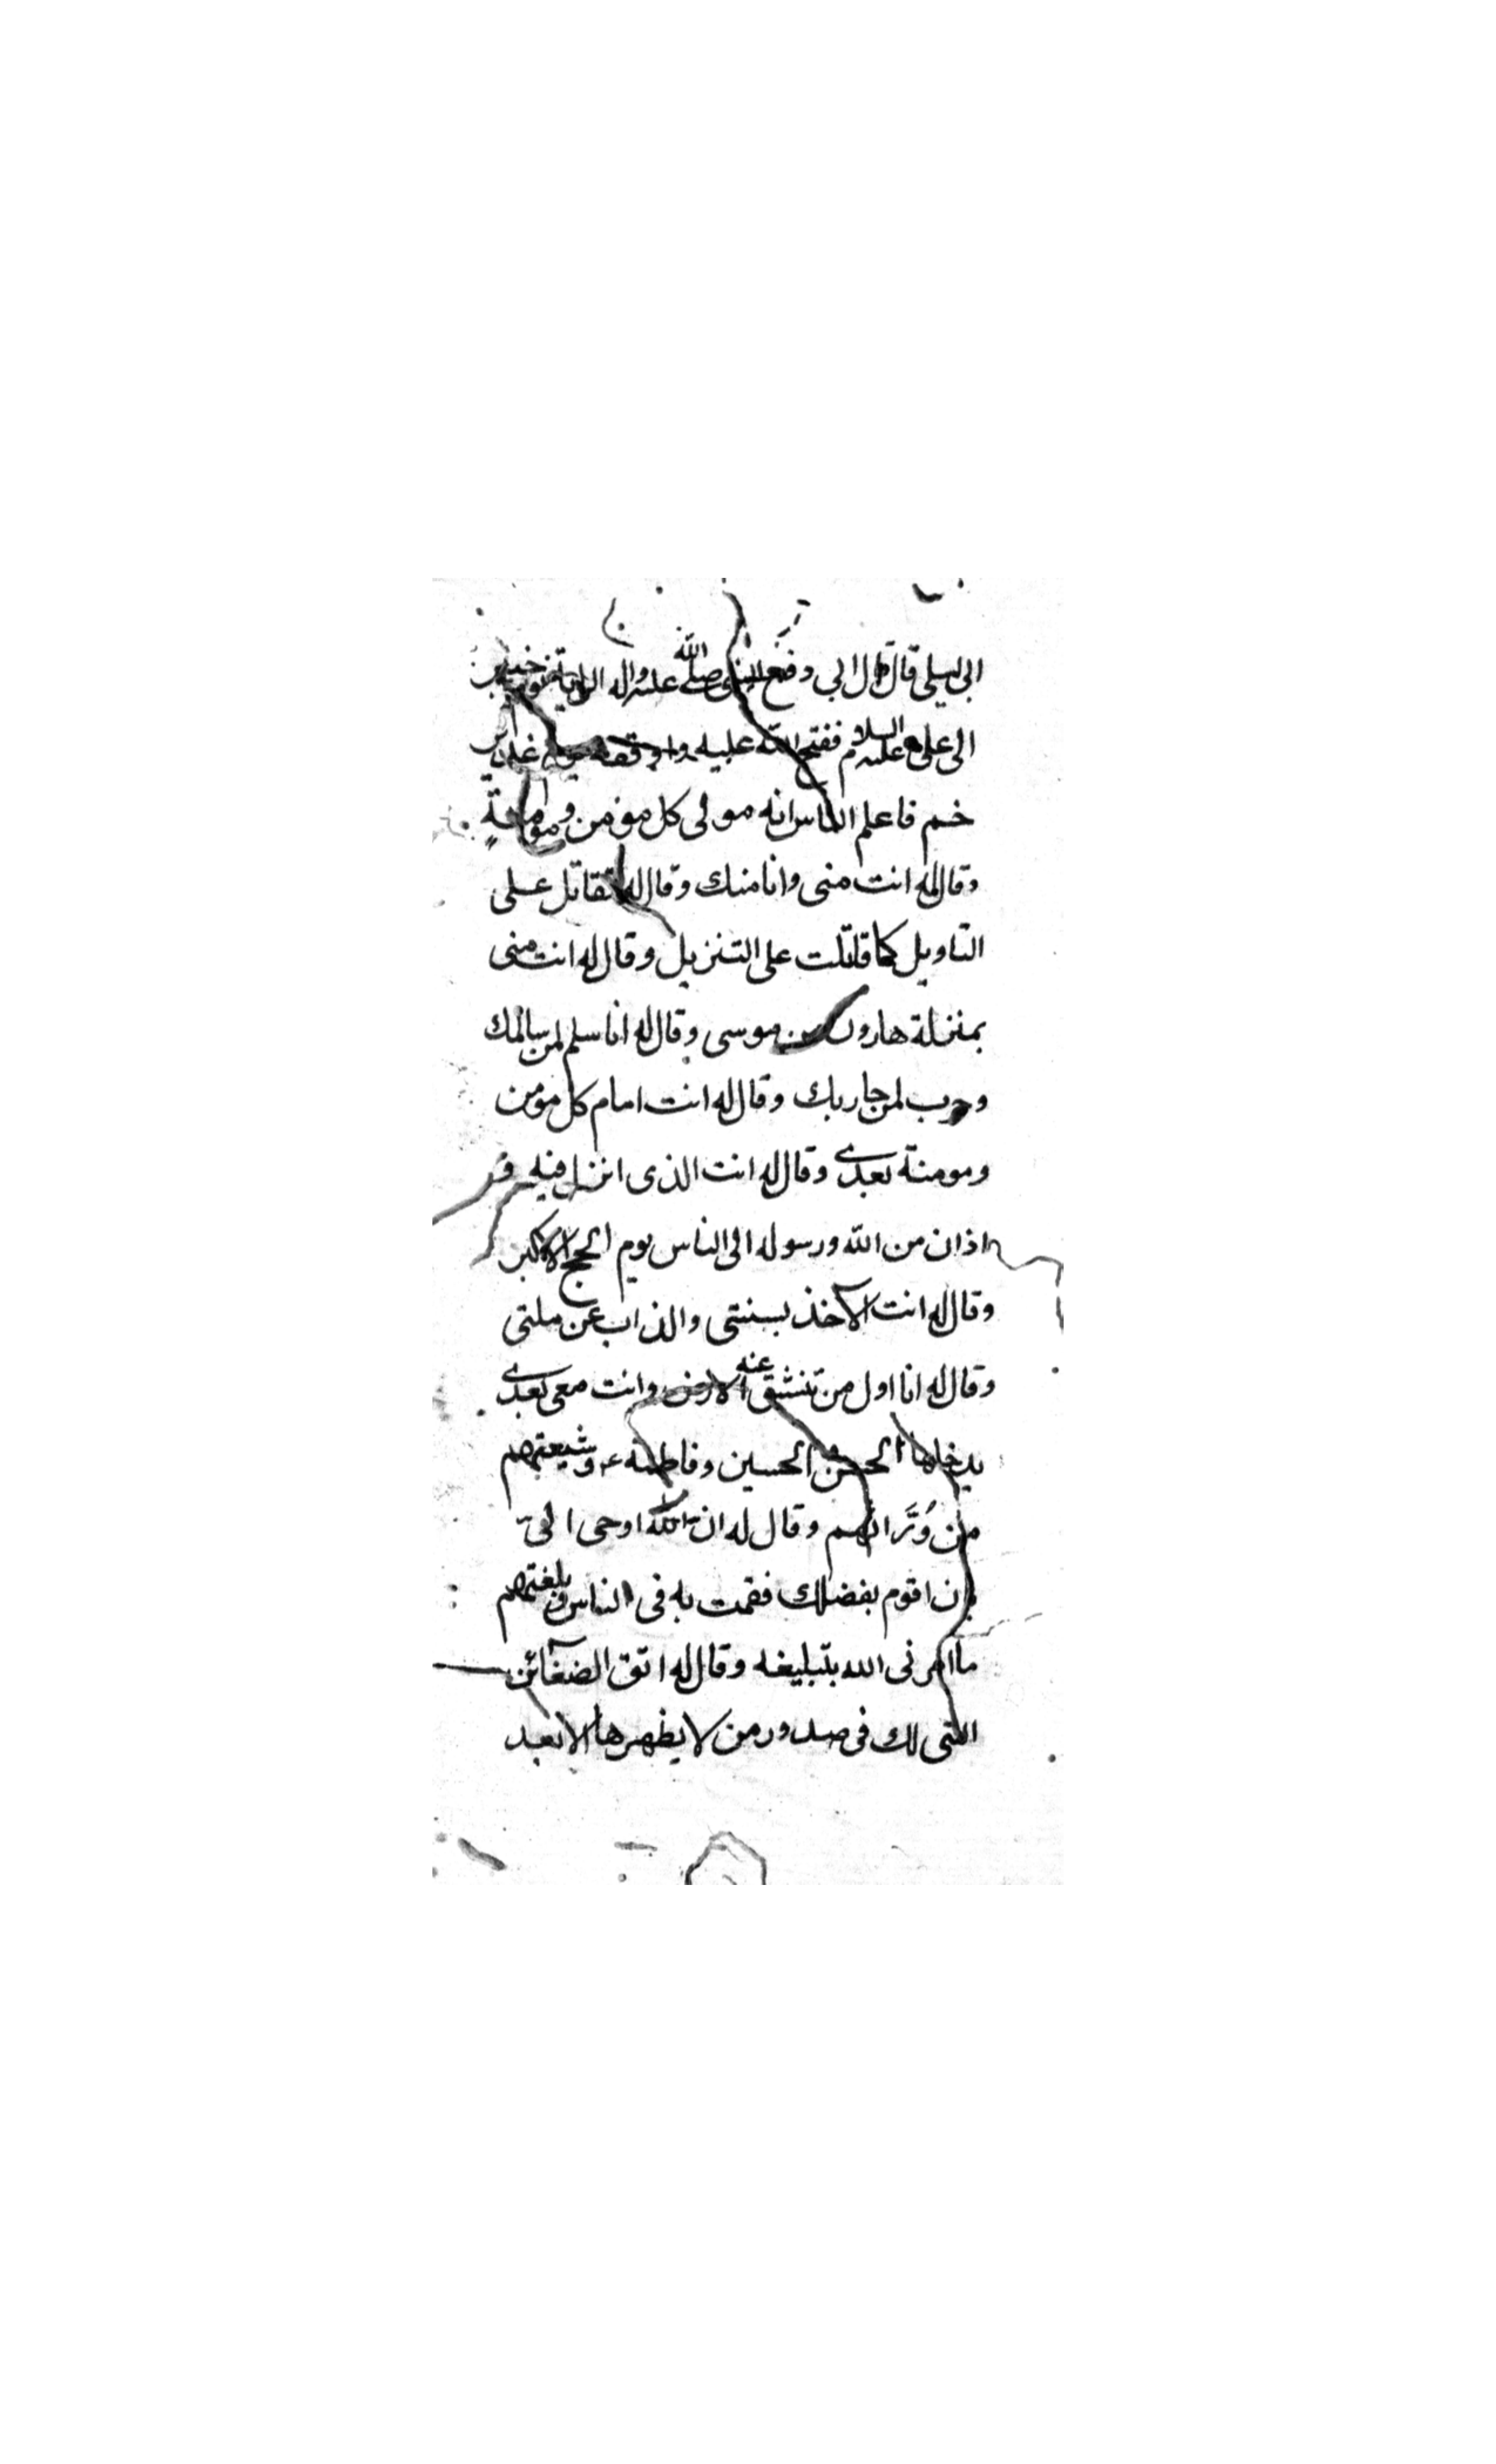 ابى ليلى قال قال ابي دفع النبى صلى الله عليه واله الراية يوم خيبر
الى على عليه السلام ففتح الله عليه واوقفه يوم غدير
خم فاعلم الناس انه مولى كل مؤمن ومؤمنةٍ
وقال له انت منى وانا منك وقال له تقاتل على
التاويل كما قاتلت على التنزيل وقال له انت منى
بمنزلة هارون من موسى وقال له انا سلم لمن سالمك
وحرب لمن حاربك وقال له انت امام كل مومن
ومومنة بعدى وقال له انت الذى انزل فيه و
اذان من الله ورسوله الى الناس يوم الحج الاكبر
وقال له انت الآخذ بسنتى والذاب عن ملتى
وقال له انا اول من تنشق عنه الارض وانت معى بعدى
يدخلها الحسن الحسين وفاطمة ع وشيعتهم
من وُرَّائهم وقال له ان الله اوحى الىّ
بان اقوم بفضلك فقمت به فى الناس وبلغتهم
ما امرنى الله بتبليغه وقال له اتق الضغآئن
التى لك فى صدور من لا يظهرها الا بعد